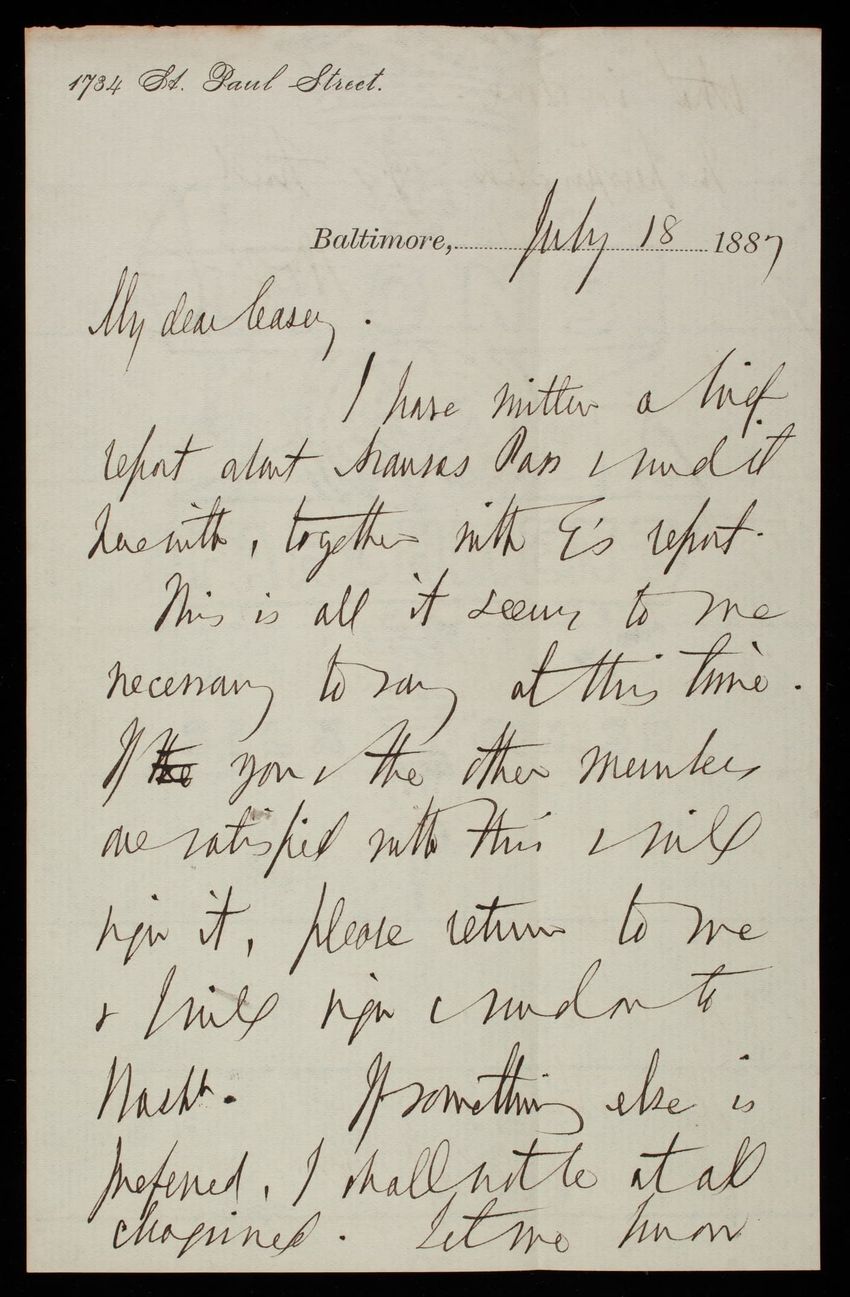 1734 St. Paul Street.
Baltimore, July 18 1887
My dear Casey.
I have written a brief
report about Aransas Pass & send it
herewith, together with G's report.
This is all it seems to me
necessary to say at this time.
If the you & the other members
are satisfied with this & will
sign it, please return to me
& I will sign & send on to
Washn. If something else is
preferred, I shall not be at all
chagrined. Let me know